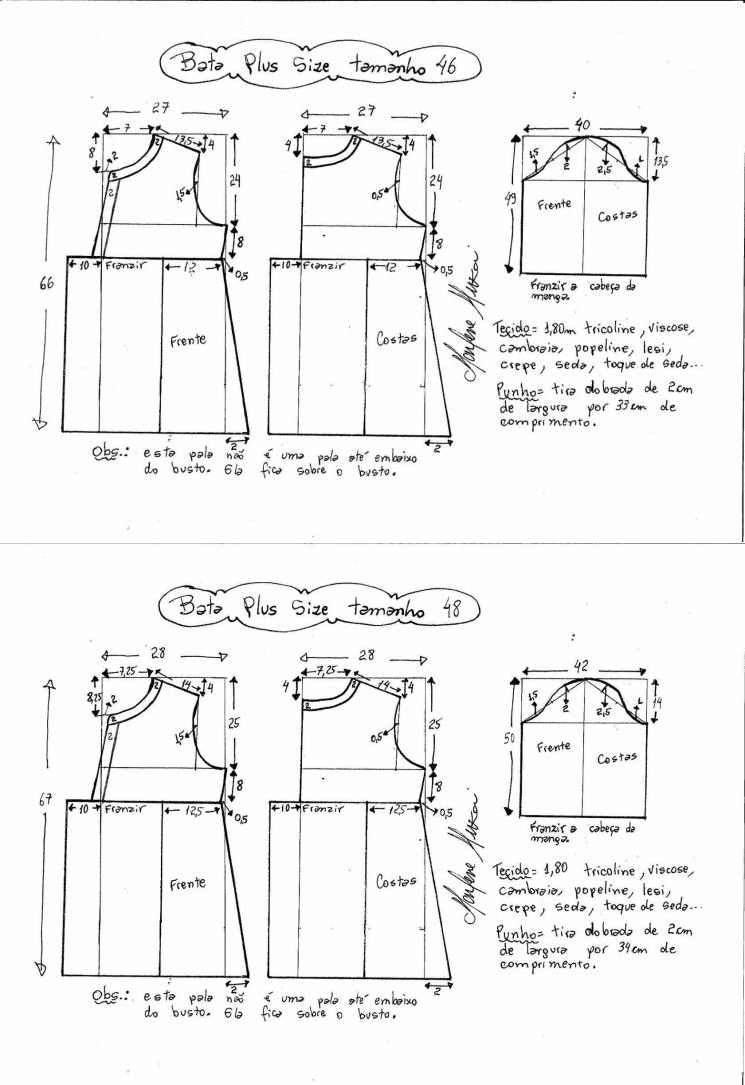 Bata Plus Size tamanho 46
27
7
13,5
4
8
2
2
2
1,5
24
8
10
Franzir
12
0,5
66
Frente
2
27
7
13,5
4
4
2
0,5
24
8
10
Franzir
12
0,5
Costas
2
40
1,5
2
2,5
1
13,5
49
Frente
Costas
Franzir a cabeça da
manga.
Marlene Mukai
Tecido = 1,80m tricoline, viscose,
cambraia, popeline, lesi,
crepe, seda, toque de seda...
Punho = tira dobrada de 2cm
de largura por 33cm de
comprimento.
Obs.: esta pala não é uma pala até embaixo
do busto. Ela fica sobre o busto.
Bata Plus Size tamanho 48
28
7,25
14
4
8,25
2
2
2
1,5
25
8
10
Franzir
12,5
0,5
67
Frente
2
28
7,25
14
4
4
2
0,5
25
8
10
Franzir
12,5
0,5
Costas
2
42
1,5
2
2,5
1
14
50
Frente
Costas
Franzir a cabeça da
manga.
Marlene Mukai
Tecido = 1,80 tricoline, viscose,
cambraia, popeline, lesi,
crepe, seda, toque de seda...
Punho = tira dobrada de 2cm
de largura por 34cm de
comprimento.
Obs.: esta pala não é uma pala até embaixo
do busto. Ela fica sobre o busto.